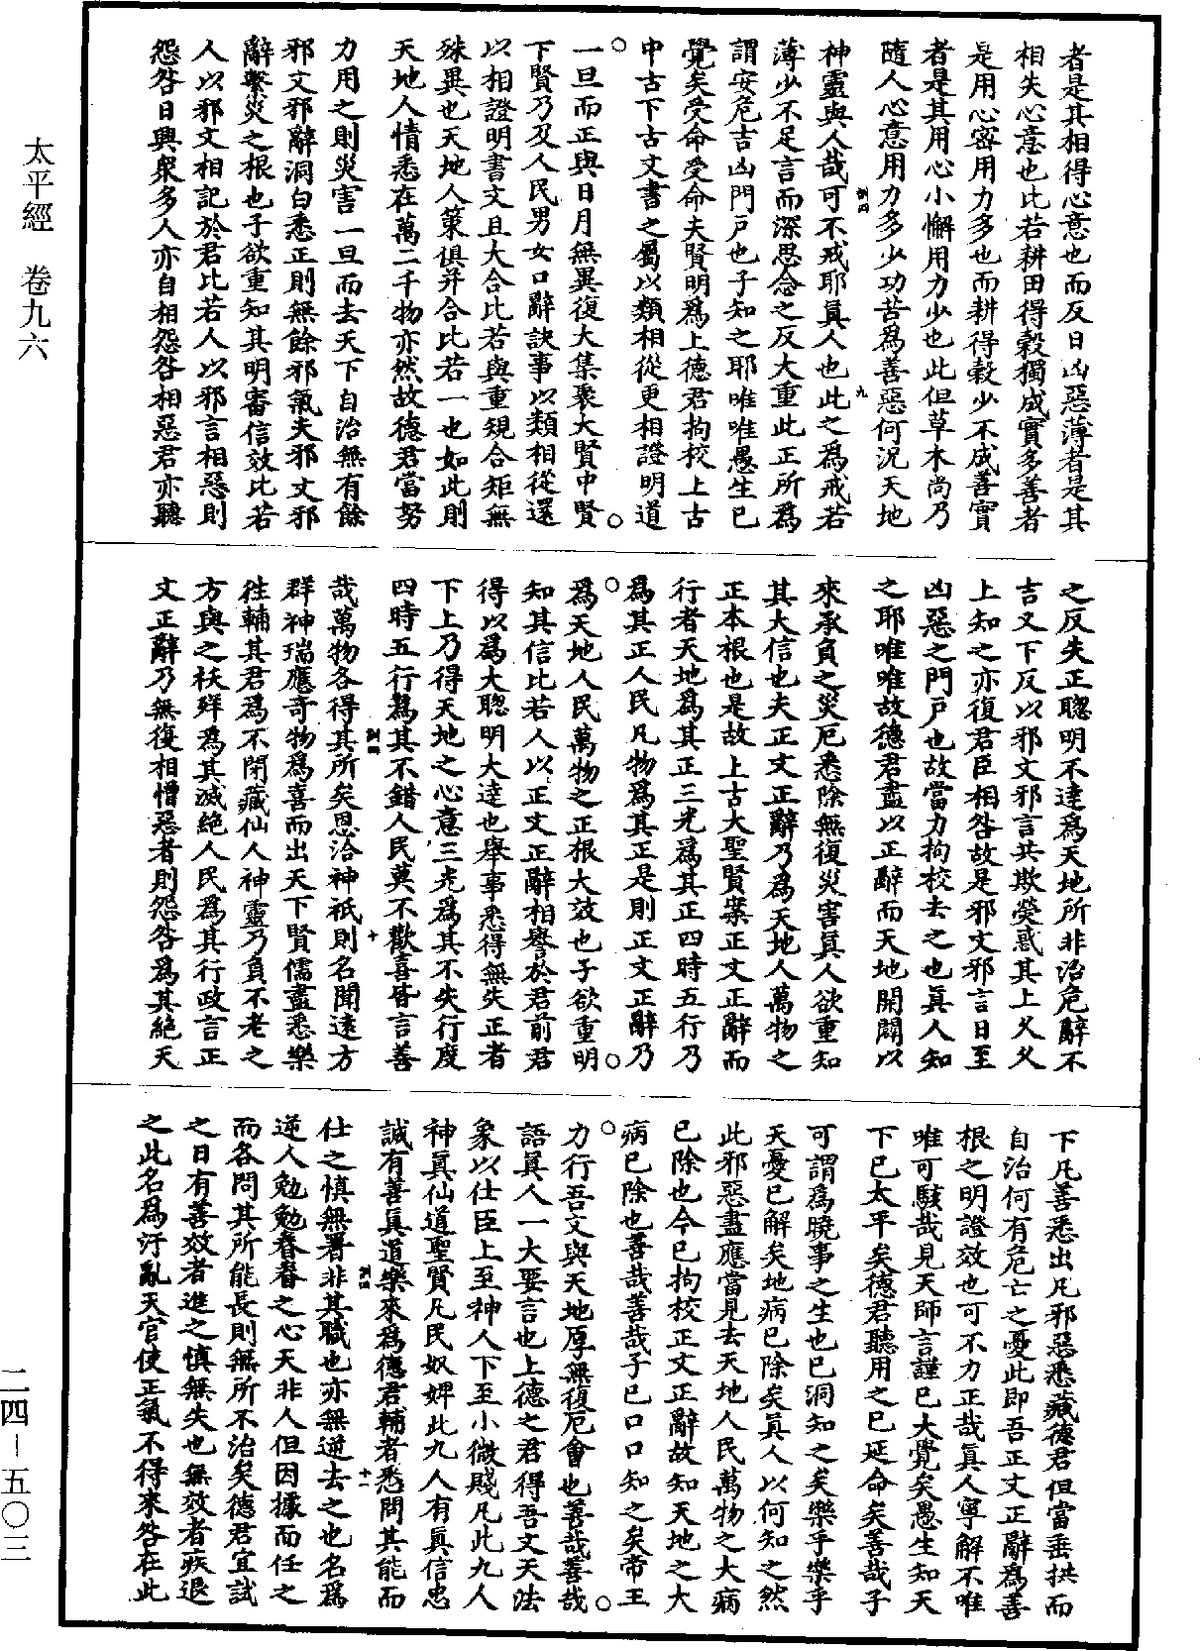 者是其相得心意也而反日凶惡薄者是其
相失心意也比若耕田得穀獨成實多善者
是用心密用力多也而耕得穀少不成善實
者是其用心小懈用力少也此但草木尚乃
隨人心意用力多少功苦爲善惡何況天地
神靈與人哉可不戒耶眞人也此之爲戒若
薄少不足言而深思念之反大重此正所爲
謂安危吉凶門戶也子知之耶唯唯愚生已
覺矣受命受命夫賢明爲上德君拘校上古
中古下古文書之屬以類相從更相證明道
一旦而正與日月無異復大集聚大賢中賢
下賢乃及人民男女口辭訣事以類相從還
以相證明書文且大合比若與重規合矩無
殊異也天地人策俱并合比若一也如此則
天地人情悉在萬二千物亦然故德君當努
力用之則災害一旦而去天下自治無有餘
邪文邪辭洞白悉正則無餘邪氣夫邪文邪
辭繫災之根也子欲重知其明審信效比若
人以邪文相記於君比若人以邪言相惡則
怨咎日興衆多人亦自相怨咎相惡君亦聽
之反失正聰明不達爲天地所非治危辭不
吉又下反以邪文邪言共欺熒惑其上父父
上知之亦復君臣相咎故是邪文邪言日至
凶惡之門戶也故當力拘校去之也眞人知
之耶唯唯故德君盡以正辭而天地開闢以
來承負之災厄悉除無復災害眞人欲重知
其大信也夫正文正辭乃爲天地人萬物之
正本根也是故上古大聖賢案正文正辭而
行者天地爲其正三光爲其正四時五行乃
爲其正人民凡物爲其正是則正文正辭乃
爲天地人民萬物之正根大效也子欲重明
知其信比若人以正文正辭相譽於君前君
得以爲大聰明大達也舉事悉得無失正者
下上乃得天地之心意三光爲其不失行度
四時五行爲其不錯人民莫不歡喜皆言善
哉萬物各得其所矣恩洽神祇則名聞遠方
群神瑞應奇物爲喜而出天下賢儒盡悉樂
往輔其君爲不閉藏仙人神靈乃負不老之
方與之袄祥爲其滅絕人民爲其行政言正
文正辭乃無復相憎惡者則怨咎爲其絕天
下凡善悉出凡邪惡悉藏德君但當垂拱而
自治何有危亡之憂此即吾正文正辭爲善
根之明證效也可不力正哉眞人寧解不唯
唯可駭哉見天師言謹已大覺矣愚生知天
下已太平矣德君聽用之已延命矣善哉子
可謂爲曉事之生也已洞知之矣樂乎樂乎
天憂已解矣地病已除矣眞人以何知之然
此邪惡盡應當見去天地人民萬物之大病
已除也今已拘校正文正辭故知天地之大
病已除也善哉善哉子已口口知之矣帝王
力行吾文與天地厚無復厄會也善哉善哉
語眞人一大要言也上德之君得吾文天法
象以仕臣上至神人下至小微賤凡此九人
神眞仙道聖賢凡民奴婢此九人有眞信忠
誠有善眞道樂來爲德君輔者悉問其能而
仕之慎無署非其職也亦無逆去之也名爲
逆人勉勉眷眷之心天非人但因據而任之
而各問其所能長則無所不治矣德君宜試
之日有善效者進之慎無失也無效者疾退
之此名爲汙亂天官使正氣不得來咎在此
太平經 卷九六
二四—五〇三